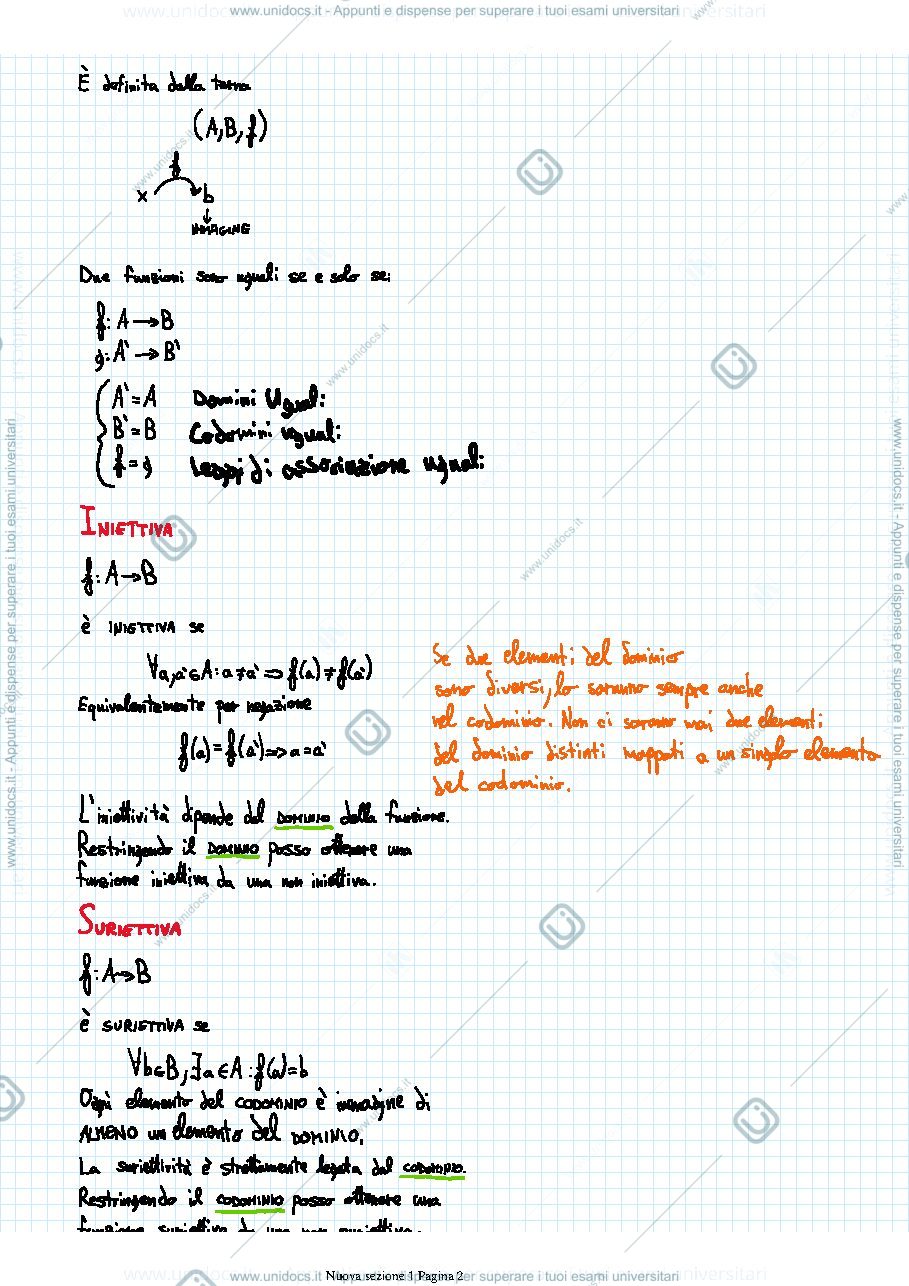 www.unidocs.it - Appunti e dispense per superare i tuoi esami universitari
È definita dalla terna
(A,B,f)
f
x b
↓
IMMAGINE
Due funzioni sono uguali se e solo se:
f: A→B
g: A'→B'
A'=A Domini Uguali
B'=B Codomini uguali
f=g Leggi di associazione uguali
INIETTIVA
f: A→B
è INIETTIVA se
∀a,a'∈A: a≠a' ⇒ f(a)≠f(a')
Equivalentemente per negazione
f(a)=f(a')⇒a=a'
Se due elementi del dominio
sono diversi, lo saranno sempre anche
nel codominio. Non ci saranno mai due elementi
del dominio distinti mappati a un singolo elemento
del codominio.
L'iniettività dipende dal DOMINIO della funzione.
Restringendo il DOMINIO posso ottenere una
funzione iniettiva da una non iniettiva.
SURIETTIVA
f: A→B
è SURIETTIVA se
∀b∈B, ∃a∈A: f(a)=b
Ogni elemento del CODOMINIO è immagine di
ALMENO un elemento del DOMINIO.
La suriettività è strettamente legata dal CODOMINIO.
Restringendo il CODOMINIO posso ottenere una
funzione suriettiva da una non suriettiva.
Nuova sezione 1 Pagina 2
www.unidocs.it - Appunti e dispense per superare i tuoi esami universitari
www.unidocs.it - Appunti e dispense per superare i tuoi esami universitari
www.unidocs.it - Appunti e dispense per superare i tuoi esami universitari